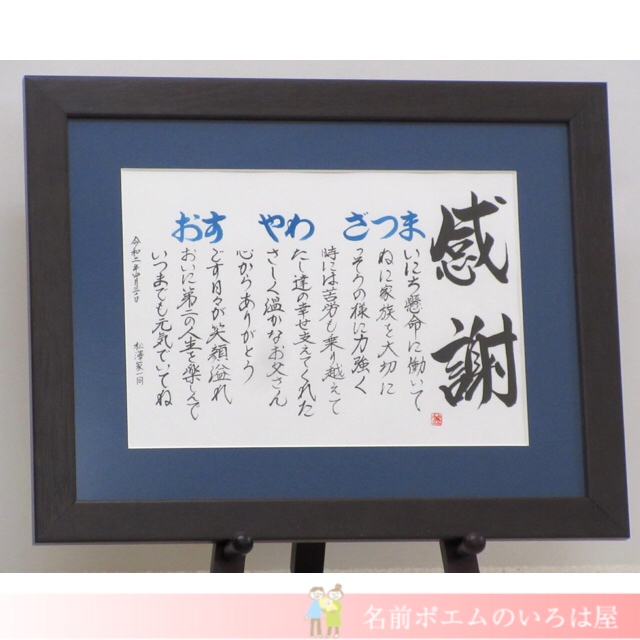 感謝
まいにち懸命に働いて
つねに家族を大切に
ざっそうの様に力強く
時には苦労も乗り越えて
わたし達の幸せ支えてくれた
やさしく温かなお父さん
心からありがとう
すごす日々が笑顔溢れ
おおいに第二の人生を楽しんで
いつまでも元気でいてね
令和二年四月 日 松澤家一同
名前ポエムのいろは屋